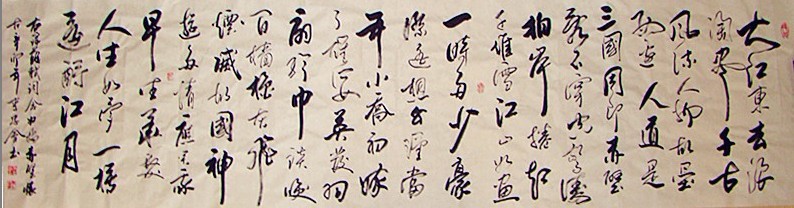 大江東去浪
淘盡千古
風流人物故壘
西邊人道是
三國周郎赤壁
亂石穿空驚濤
拍岸捲起
千堆雪江山如畫
一時多少豪
傑遥想公瑾當
年小喬初嫁
了雄姿英發羽
扇綸巾談笑
間檣櫓灰飛
煙滅故國神
遊多情應笑我
早生華髮
人生如夢一樽
還酹江月
右錄蘇軾詞念奴嬌赤壁懷
古辛卯年